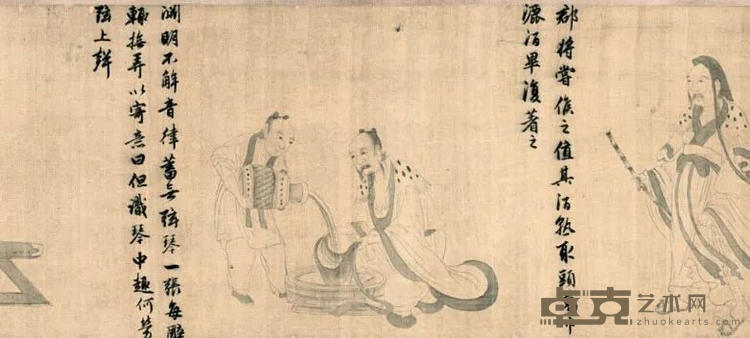 郡將嘗候之值其酒熟取頭巾
漉酒畢復著之
淵明不解音律蓄無弦琴一張每醉
輒撫弄以寄意曰但識琴中趣何勞
弦上聲
卓克艺术网
zhuokearts.com